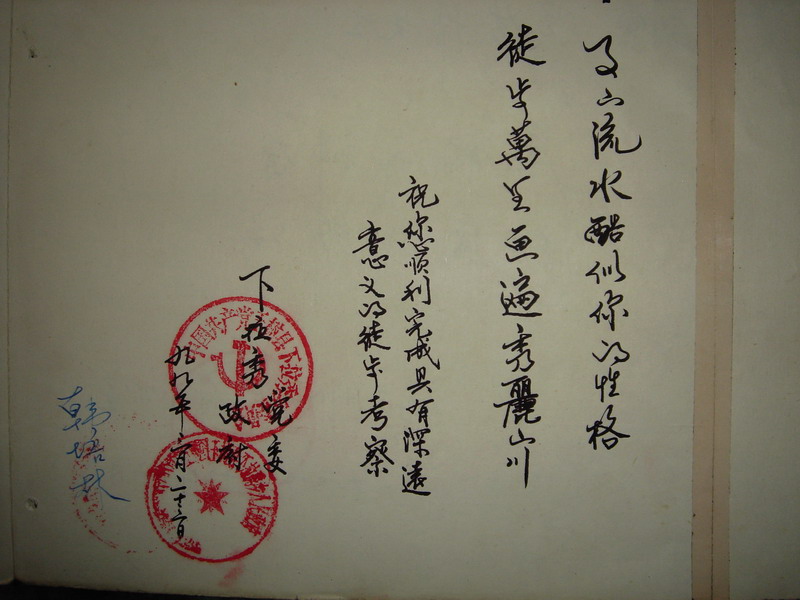 山流水酷似你的性格
徒步萬里画遍秀麗山川
祝您顺利完成具有深遠
意义的徒步考察
下拉秀党委
政府
九九年六月二十二日
韩培林